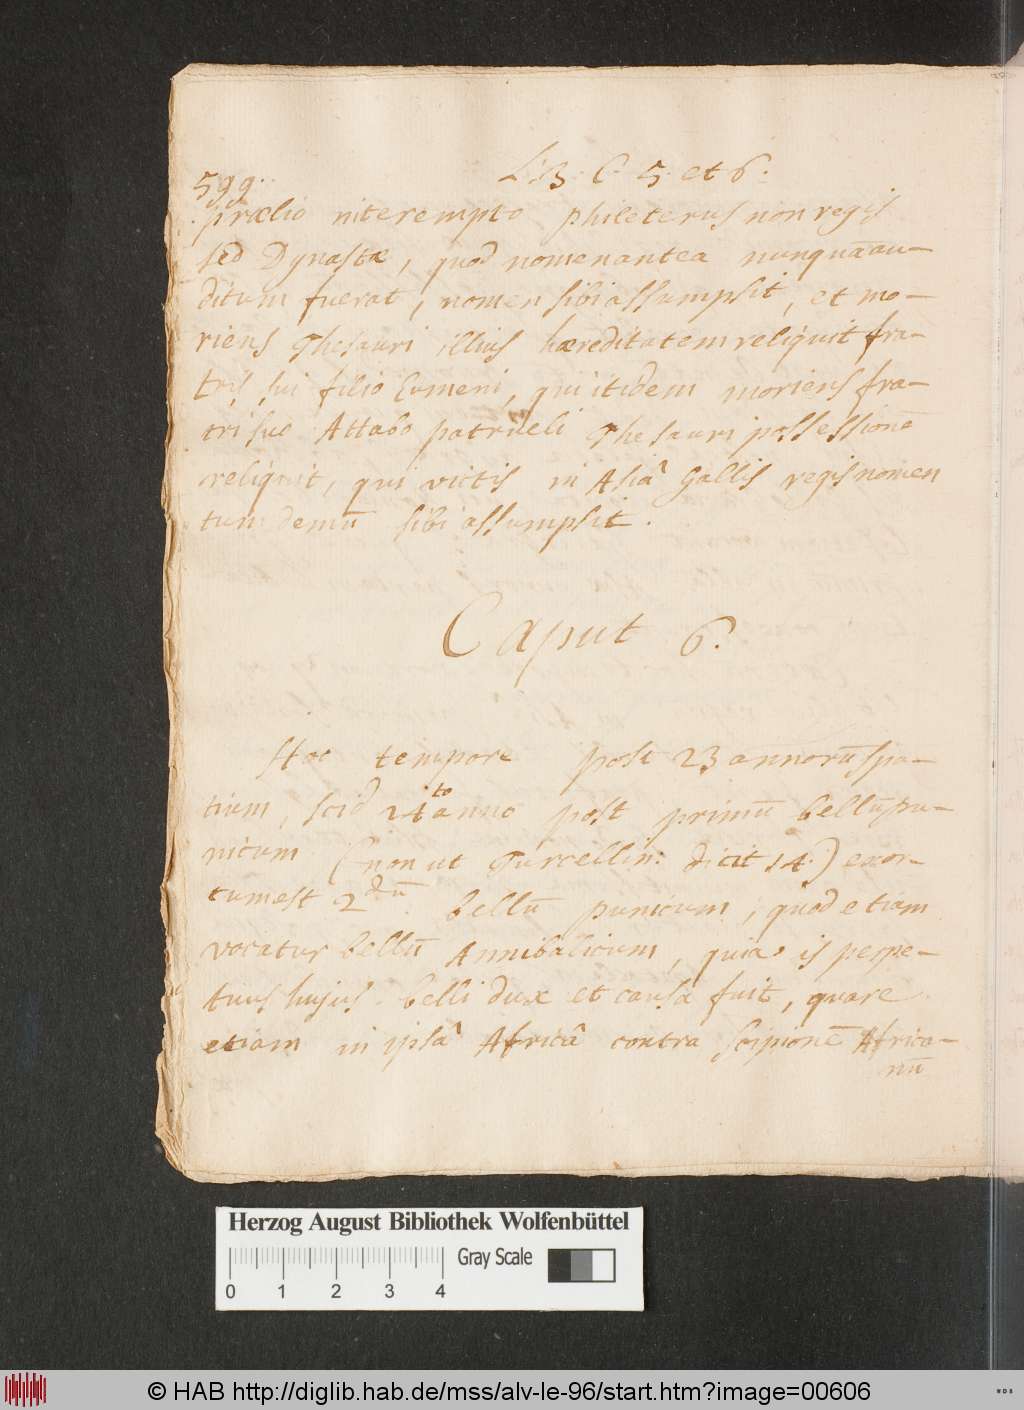 599.
L. 3. C. 5. et 6.
prælio niterempto phileterus non regis
sed Dynastæ, quod nomen antea nunquā au-
ditum fuerat, nomen sibi assumpsit, et mo-
riens Thesauri illius hæreditatem reliquit fra-
tris sui filio Eumeni, qui itidem moriens fra-
tri suo Attalo patrueli Thesauri possessionē
reliquit, qui victis in Asiâ Gallis regis nomen
tum demū sibi assumpsit.
Caput 6.
Hoc tempore post 23 annorū spa-
tium, scid 24to anno post primū bellū pu-
nicum (non ut Turcellin: dicit 14.) exor-
tum est 2dū bellū punicum, quod etiam
vocatur bellū Annibalicum, quia is perpe-
tuus hujus belli dux et causa fuit, quare
etiam in ipsâ Africâ contra Scipionē Africa-
nū
Herzog August Bibliothek Wolfenbüttel
Gray Scale
0 1 2 3 4
© HAB http://diglib.hab.de/mss/alv-le-96/start.htm?image=00606